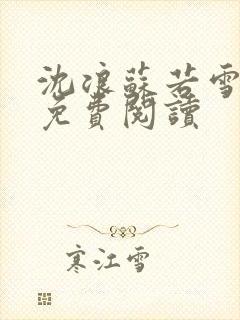 沈浪蘇若雪
免費閱讀
寒江雪